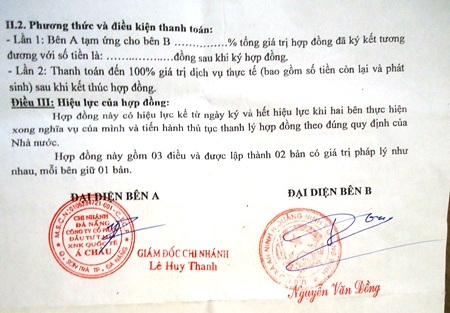 II.2. Phương thức và điều kiện thanh toán:
- Lần 1: Bên A tạm ứng cho bên B ……………% tổng giá trị hợp đồng đã ký kết tương
đương với số tiền là: ……………….đồng sau khi ký hợp đồng.
- Lần 2: Thanh toán đến 100% giá trị dịch vụ thực tế (bao gồm số tiền còn lại và phát
sinh) sau khi kết thúc hợp đồng.
Điều III: Hiệu lực của hợp đồng:
Hợp đồng này có hiệu lực kể từ ngày ký và hết hiệu lực khi hai bên thực hiện
xong nghĩa vụ của mình và tiến hành thủ tục thanh lý hợp đồng theo đúng quy định của
Nhà nước.
Hợp đồng này gồm 03 điều và được lập thành 02 bản có giá trị pháp lý như
nhau, mỗi bên giữ 01 bản.
ĐẠI DIỆN BÊN A
ĐẠI DIỆN BÊN B
CHI NHÁNH
ĐÀ NẴNG
CÔNG TY CỔ PHẦN
ĐẦU TƯ T
XNK QUỐC TẾ
Á CHÂU
Q. SƠN TRÀ TP. ĐÀ NẴNG
GIÁM ĐỐC CHI NHÁNH
Lê Huy Thanh
Nguyễn Văn Đồng